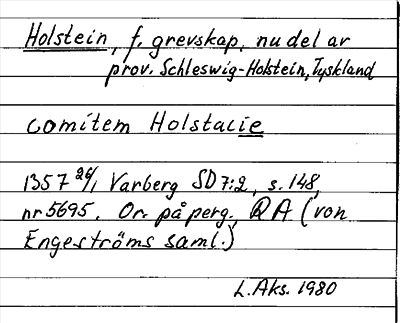 Holstein, f. grevskap, nu del av
prov. Schleswig-Holstein, Tyskland
comitem Holstacie
1357 26/1 Varberg SD 7:2, s. 148,
nr 5695. Or. på perg., RA (von
Engeströms saml.)
L. Aks. 1980